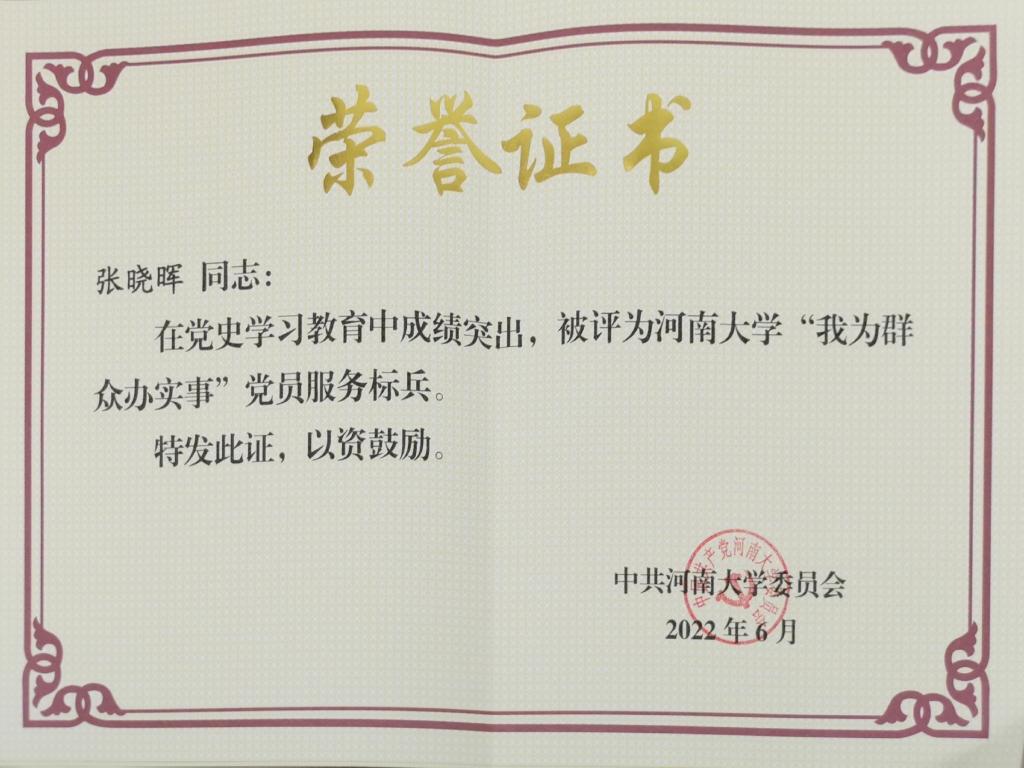 荣誉证书
张晓晖 同志：
在党史学习教育中成绩突出，被评为河南大学“我为群
众办实事”党员服务标兵。
特发此证，以资鼓励。
中共河南大学委员会
2022 年 6 月
中国共产党河南大学委员会